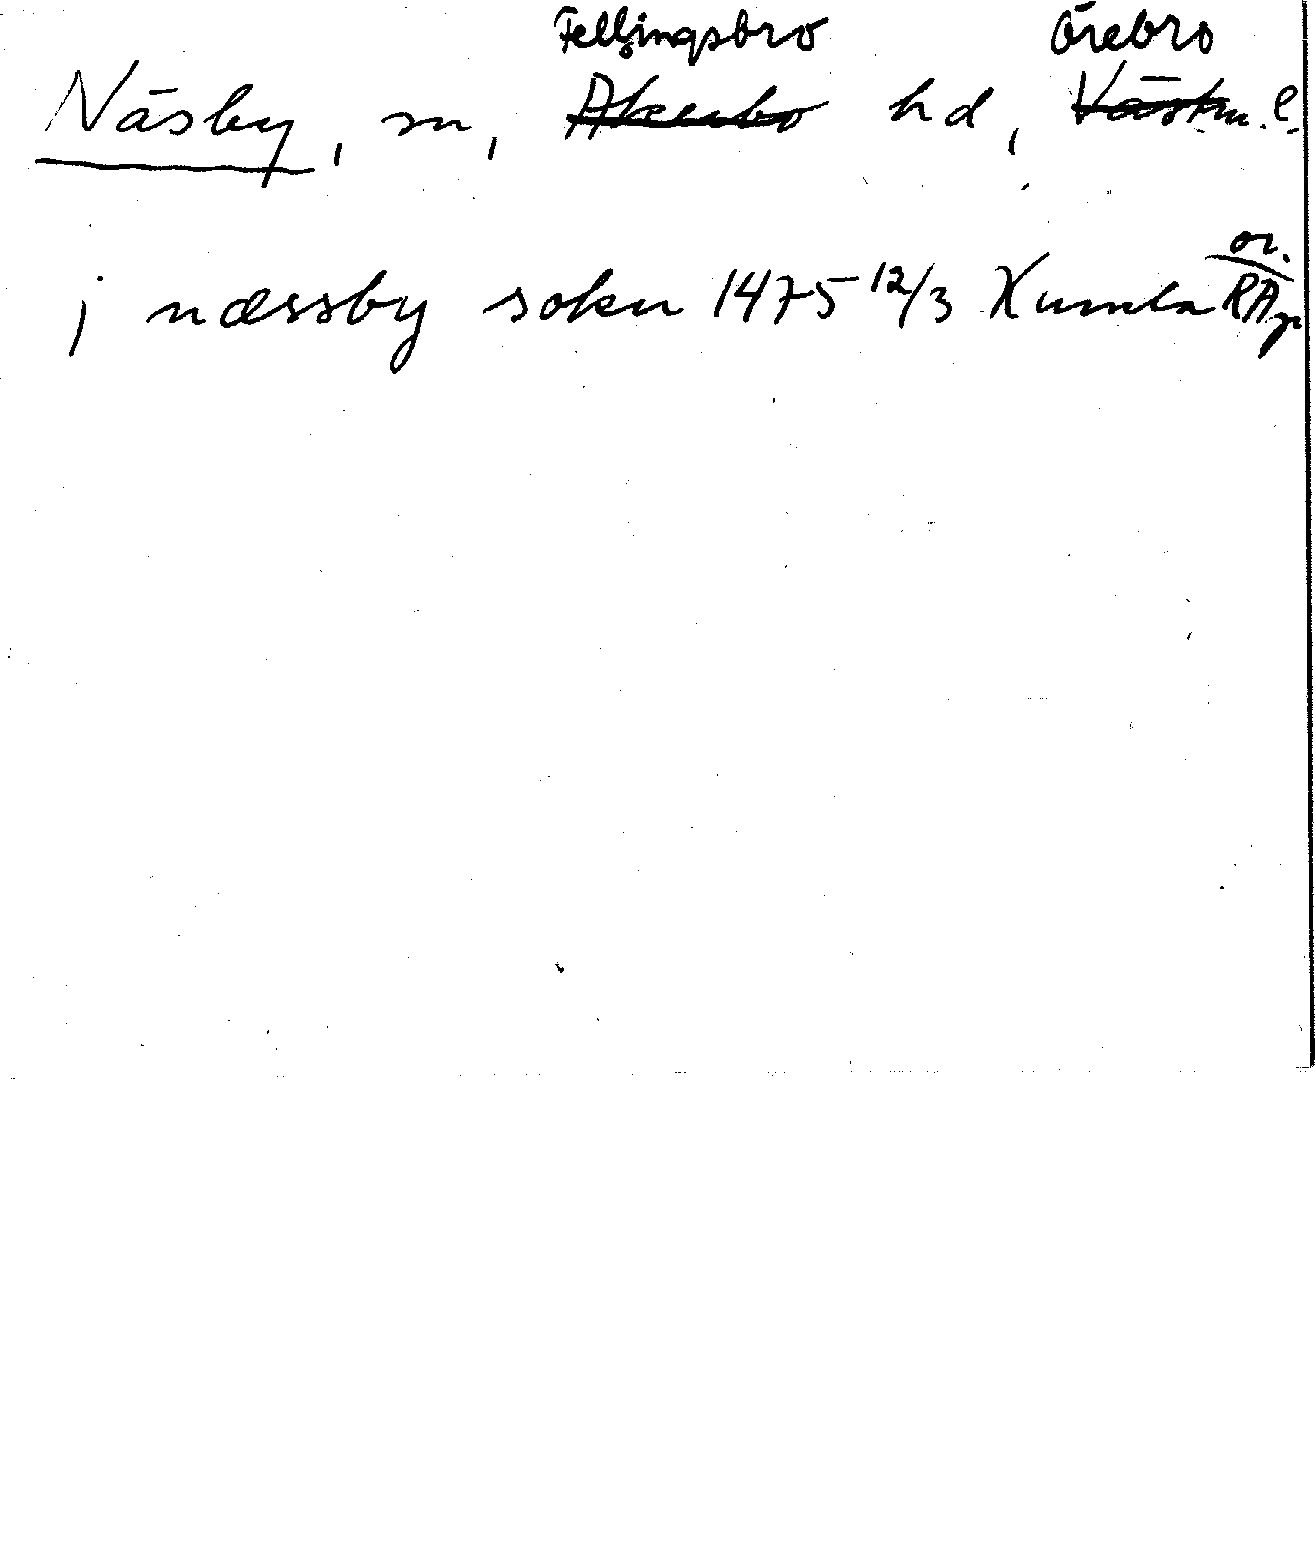 Fellingsbro Örebro
Näsby, sn, Åkerbo hd, Västm. l.
j næssby sokn 1475 12/3 Kumla or. RAp